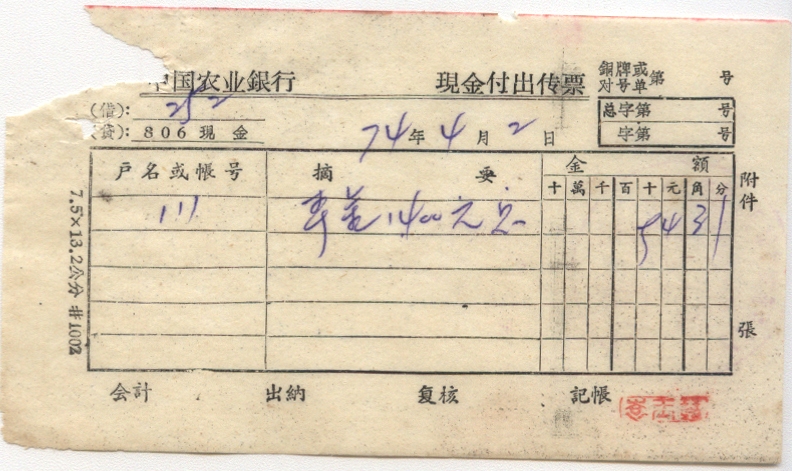 中国农业銀行 現金付出传票 銅牌或对号单第 号
(借): 252 总字第 号
(贷): 806 现金 74年4月2日 字第 号
户名或帳号 摘要 金額 附件
十萬千百十元角分
111 1400元 5431
張
会計 出納 复核 記帳
7.5×13.2公分 #1002